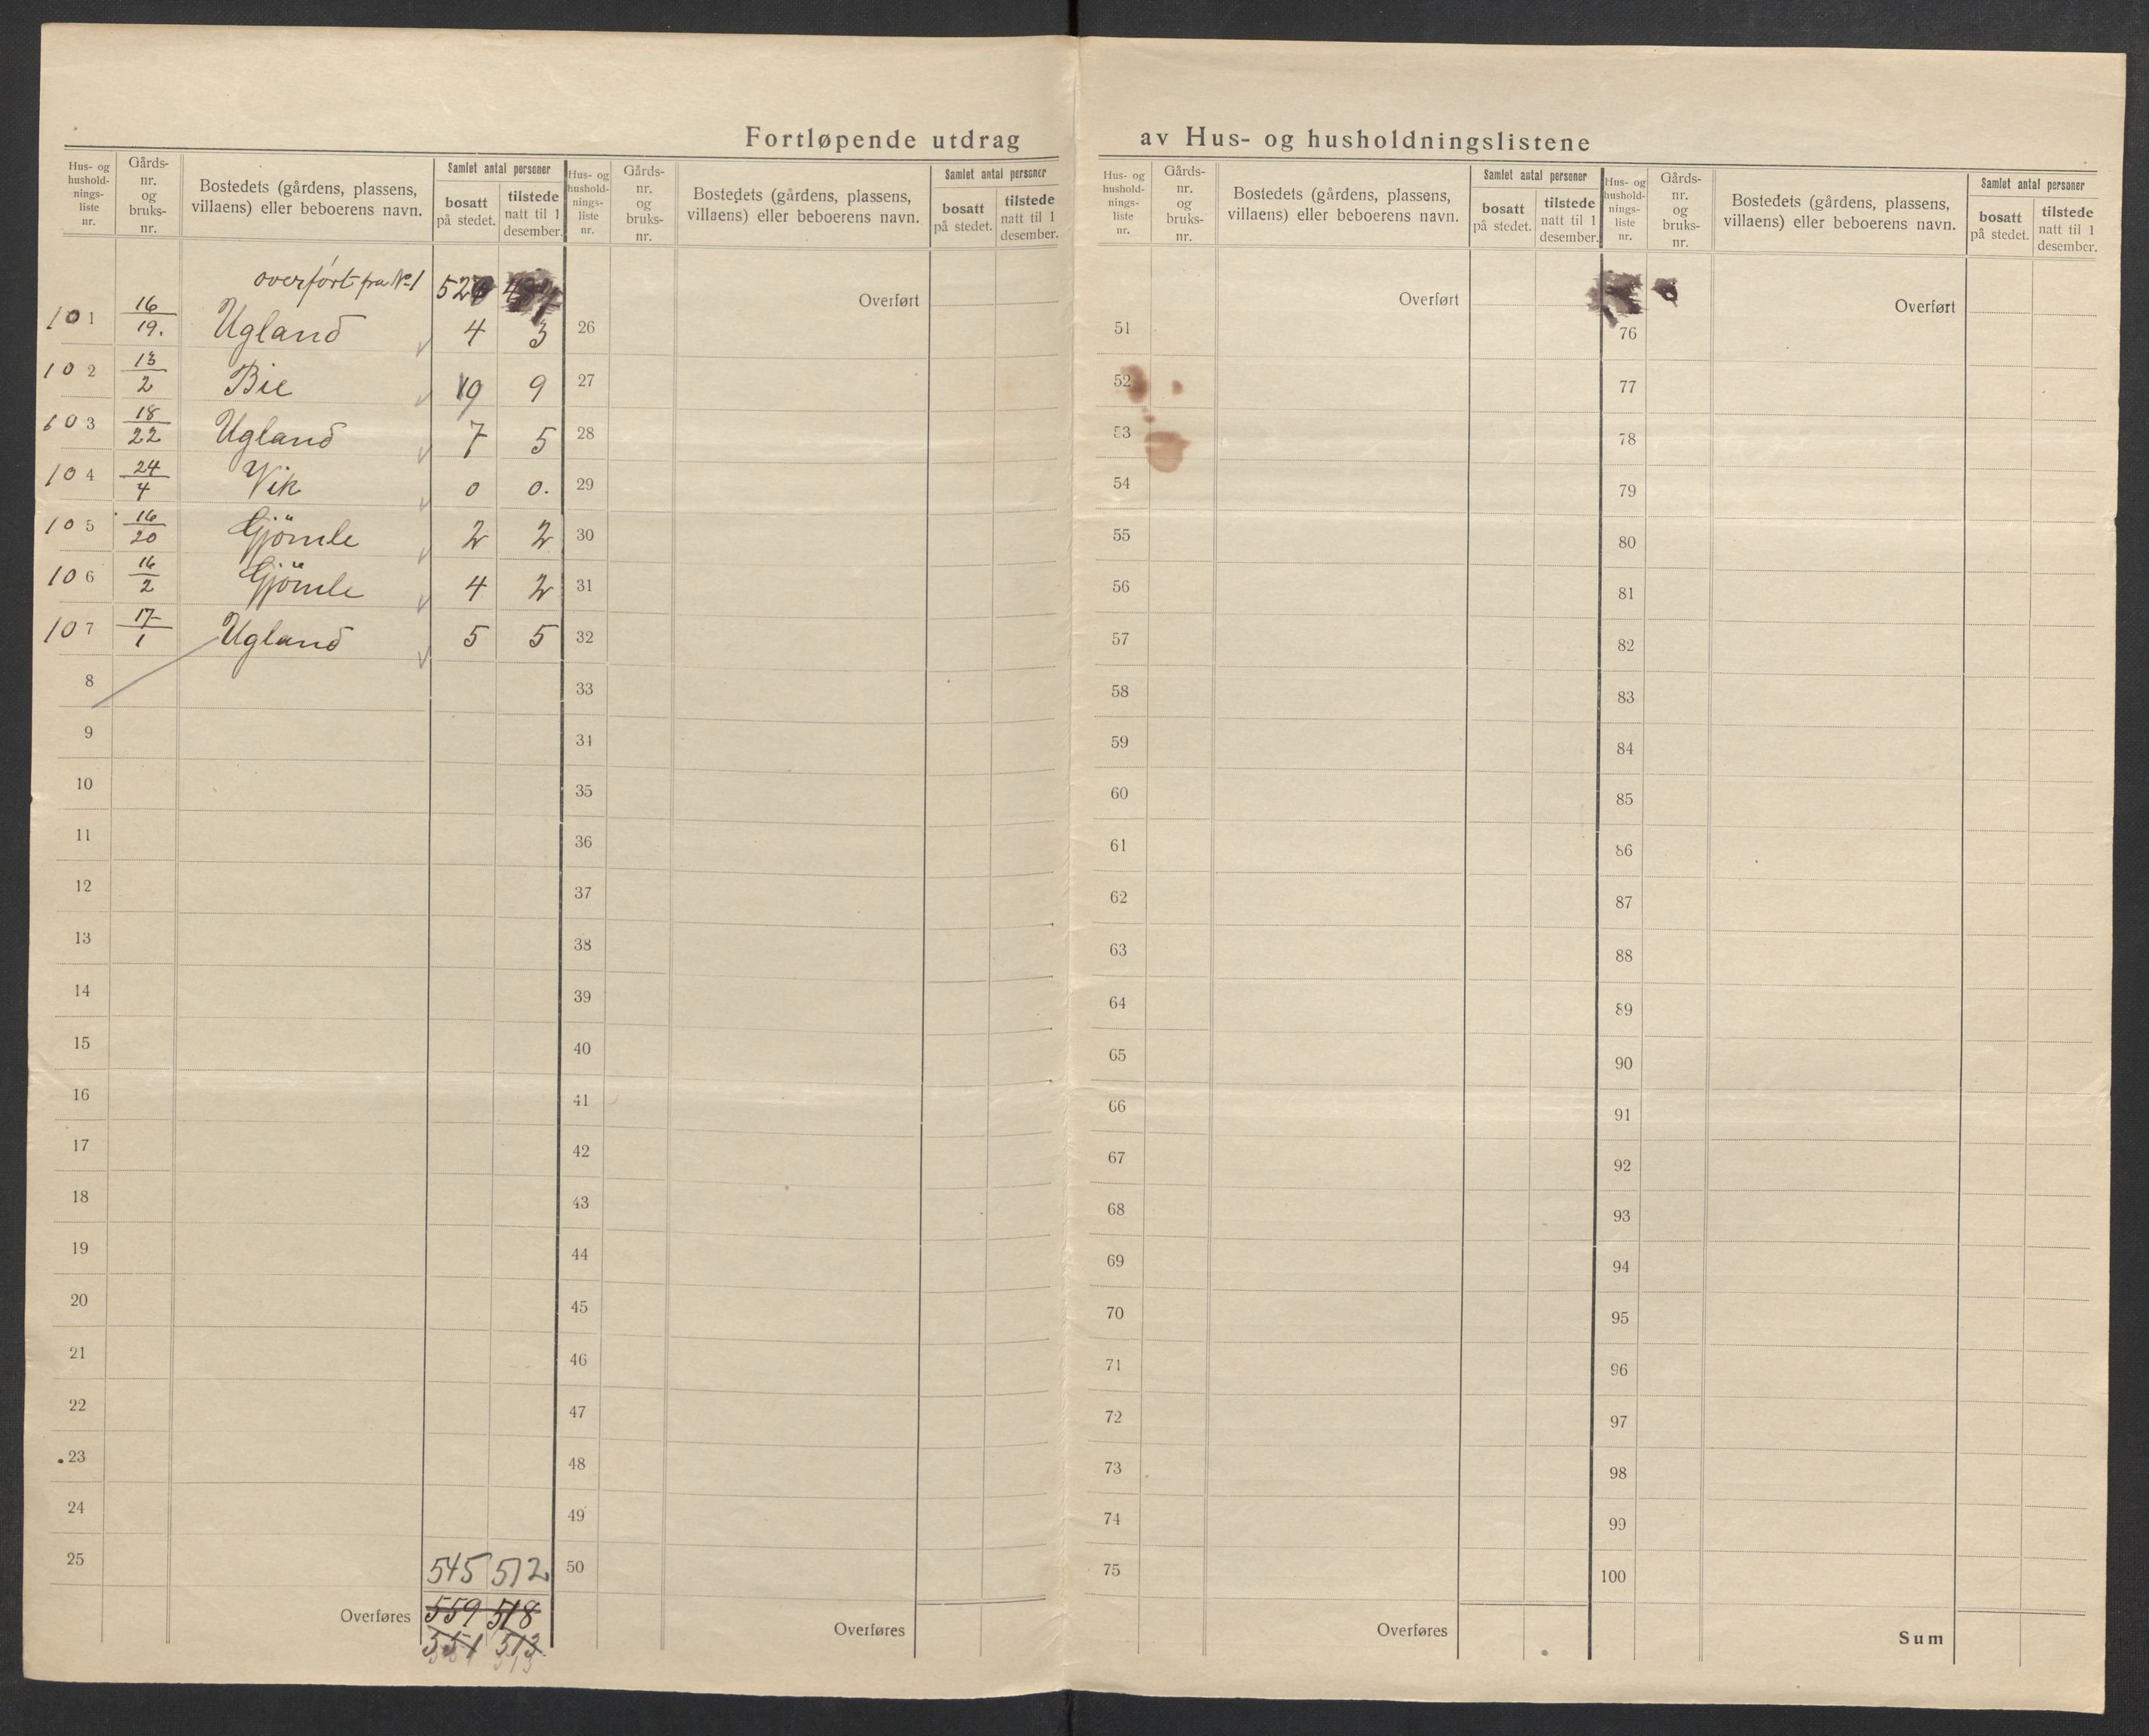 Fortløpende utdrag av Hus- og husholdningslistene
Hus- og
hushold-
nings-
liste
nr.
Gårds-
nr.
og
bruks-
nr.
Bostedets (gårdens, plassens,
villaens) eller beboerens navn.
Samlet antal personer
bosatt
på stedet.
tilstede
natt til 1
desember.
overført fra No 1
101 16/19. Ugland 4 3
102 13/2 Bie 9 9
103 18/22 Ugland 7 5
104 24/4 Vik 0 0.
105 16/20 Gjömle 2 2
106 16/2 Gjömle 4 2
107 17/1 Ugland 5 5
8
9
10
11
12
13
14
15
16
17
18
19
20
21
22
23
24
25
545 512
Overføres 559 518
551 513
Hus- og
hushold-
nings-
liste
nr.
Gårds-
nr.
og
bruks-
nr.
Bostedets (gårdens, plassens,
villaens) eller beboerens navn.
Samlet antal personer
bosatt
på stedet.
tilstede
natt til 1
desember.
Overført
26
27
28
29
30
31
32
33
31
35
36
37
38
39
40
41
42
43
44
45
46
47
48
49
50
Overføres
Hus- og
hushold-
nings-
liste
nr.
Gårds-
nr.
og
bruks-
nr.
Bostedets (gårdens, plassens,
villaens) eller beboerens navn.
Samlet antal personer
bosatt
på stedet.
tilstede
natt til 1
desember.
Overført
51
52
53
54
55
56
57
58
59
60
61
62
63
64
65
66
67
68
69
70
71
72
73
74
75
Overføres
Hus- og
hushold-
nings-
liste
nr.
Gårds-
nr.
og
bruks-
nr.
Bostedets (gårdens, plassens,
villaens) eller beboerens navn.
Samlet antal personer
bosatt
på stedet.
tilstede
natt til 1
desember.
Overført
76
77
78
79
80
81
82
83
84
85
86
87
88
89
90
91
92
93
94
95
96
97
98
99
100
Sum